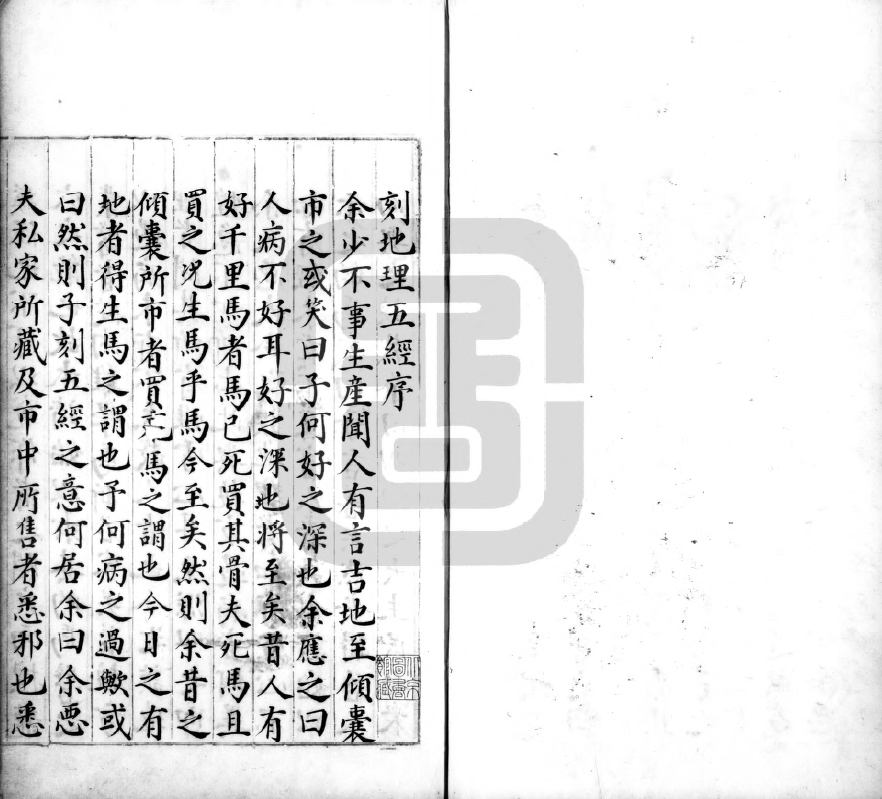 刻地理五經序
余少不事生産聞人有言吉地至傾囊
市之或笑曰子何好之深也余應之曰
人病不好耳好之深地將至矣昔人有
好千里馬者馬已死買其骨夫死馬且
買之况生馬乎馬今至矣然則余昔之
傾囊所市者買死馬之謂也今日之有
地者得生馬之謂也予何病之過歟或
曰然則子刻五經之意何居余曰余惡
夫私家所藏及市中所售者悉邪也悉